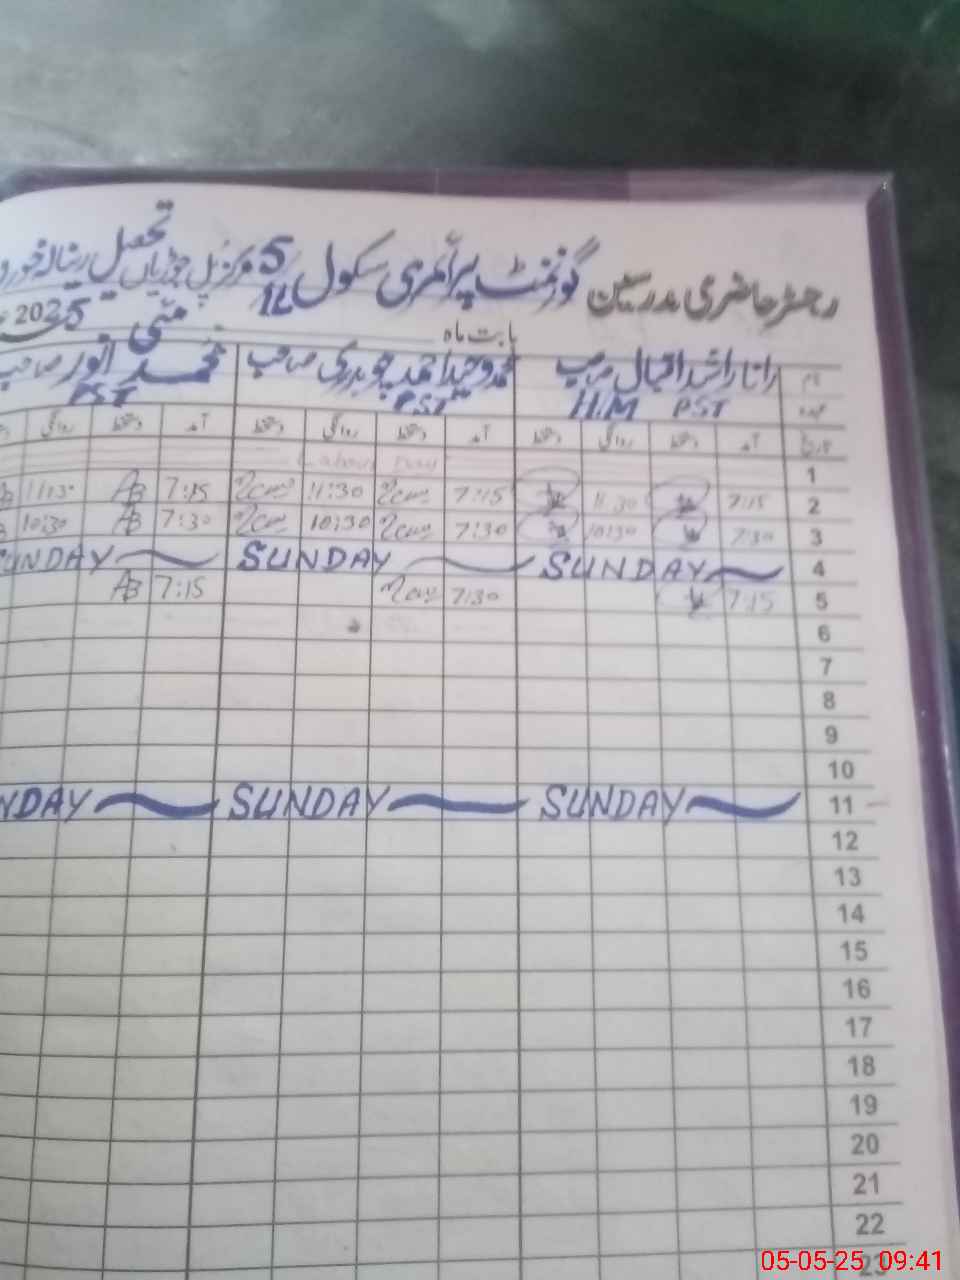 رجسٹر حاضری مدرسین گورنمنٹ پرائمری سکول 5/1L مرکز پل جوڑیاں تحصیل رینالہ خورد
بابت ماہ مئی 2025
نام رانا راشد اقبال صاحب محمد وحید احمد چوہدری صاحب محمد انور صاحب
عہدہ H.M PST PST PST
تاریخ آمد دستخط روانگی دستخط آمد دستخط روانگی دستخط آمد دستخط روانگی
1 Labour Day
2 7:15 11:30 7:15 11:30 7:15 AB 11:30 AB
3 7:30 10:30 7:30 10:30 7:30 AB 10:30 AB
4 SUNDAY SUNDAY SUNDAY
5 7:15 7:30 7:15 AB
6
7
8
9
10
11 SUNDAY SUNDAY NDAY
12
13
14
15
16
17
18
19
20
21
22
23
05-05-25 09:41